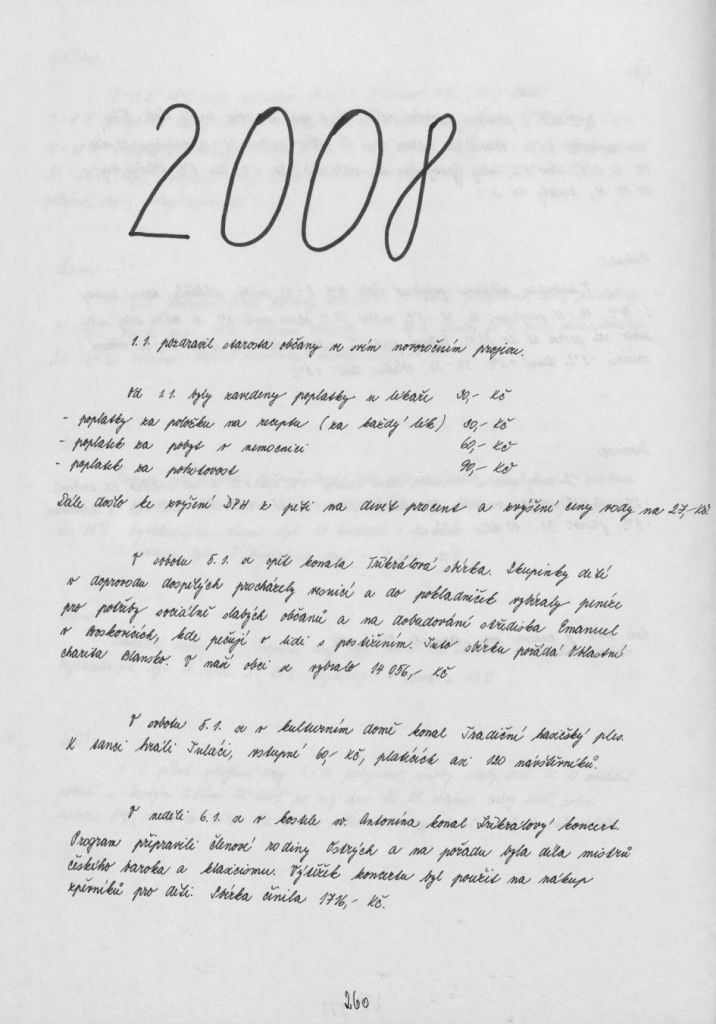 2008
1.1. pozdravil starosta občany ve svém novoročním projevu.
Od 1.1. byly zavedeny poplatky u lékaře 30,- Kč
- poplatky za položku na receptu (za každý lék) 30,- Kč
- poplatek za pobyt v nemocnici 60,- Kč
- poplatek za pohotovost 90,- Kč
Dále došlo ke zvýšení DPH z pěti na devět procent a zvýšení ceny vody na 27,- Kč.
V sobotu 5.1. se opět konala Tříkrálová sbírka. Skupinky dětí
v doprovodu dospělých procházely vesnicí a do pokladniček vybíraly peníze
pro potřeby sociálně slabých občanů a na dobudování střediska Emanuel
v Boskovicích, kde pečují o lidi s postižením. Tuto sbírku pořádá Oblastní
charita Blansko. V naší obci se vybralo 14 056,- Kč
V sobotu 5.1. se v kulturním domě konal Tradiční hasičský ples.
K tanci hráli Tuláci, vstupné 60,- Kč, platících asi 120 návštěvníků.
V neděli 6.1. se v kostele sv. Antonína konal Tříkrálový koncert.
Program připravili členové rodiny Ostrých a na pořadu byla díla mistrů
českého baroka a klasicismu. Výtěžek koncertu byl použit na nákup
zpěvníků pro děti. Sbírka činila 1716,- Kč.
260